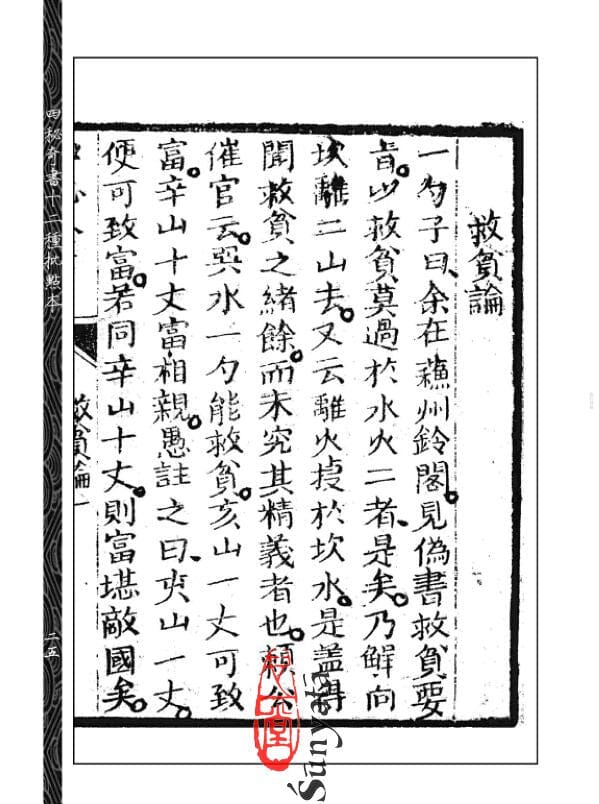 救貧論
一勺子曰、余在蘓州鈴閣。見偽書救貧要
肯。以救貧莫過於水火二者、是矣。乃觧向
坎離二山去。又云離火捘於坎水。是盖得
聞救貧之緒餘。而未究其精義者也。頼公
催官云。巽水一勺能救貧。亥山一丈可致
富。辛山十丈富相親。愚註之曰、亥山一丈。
便可致富。若同辛山十丈。則富堪敵國矣。
救貧論 一
四秘奇書十二種批點本
二五
Śūnyatā